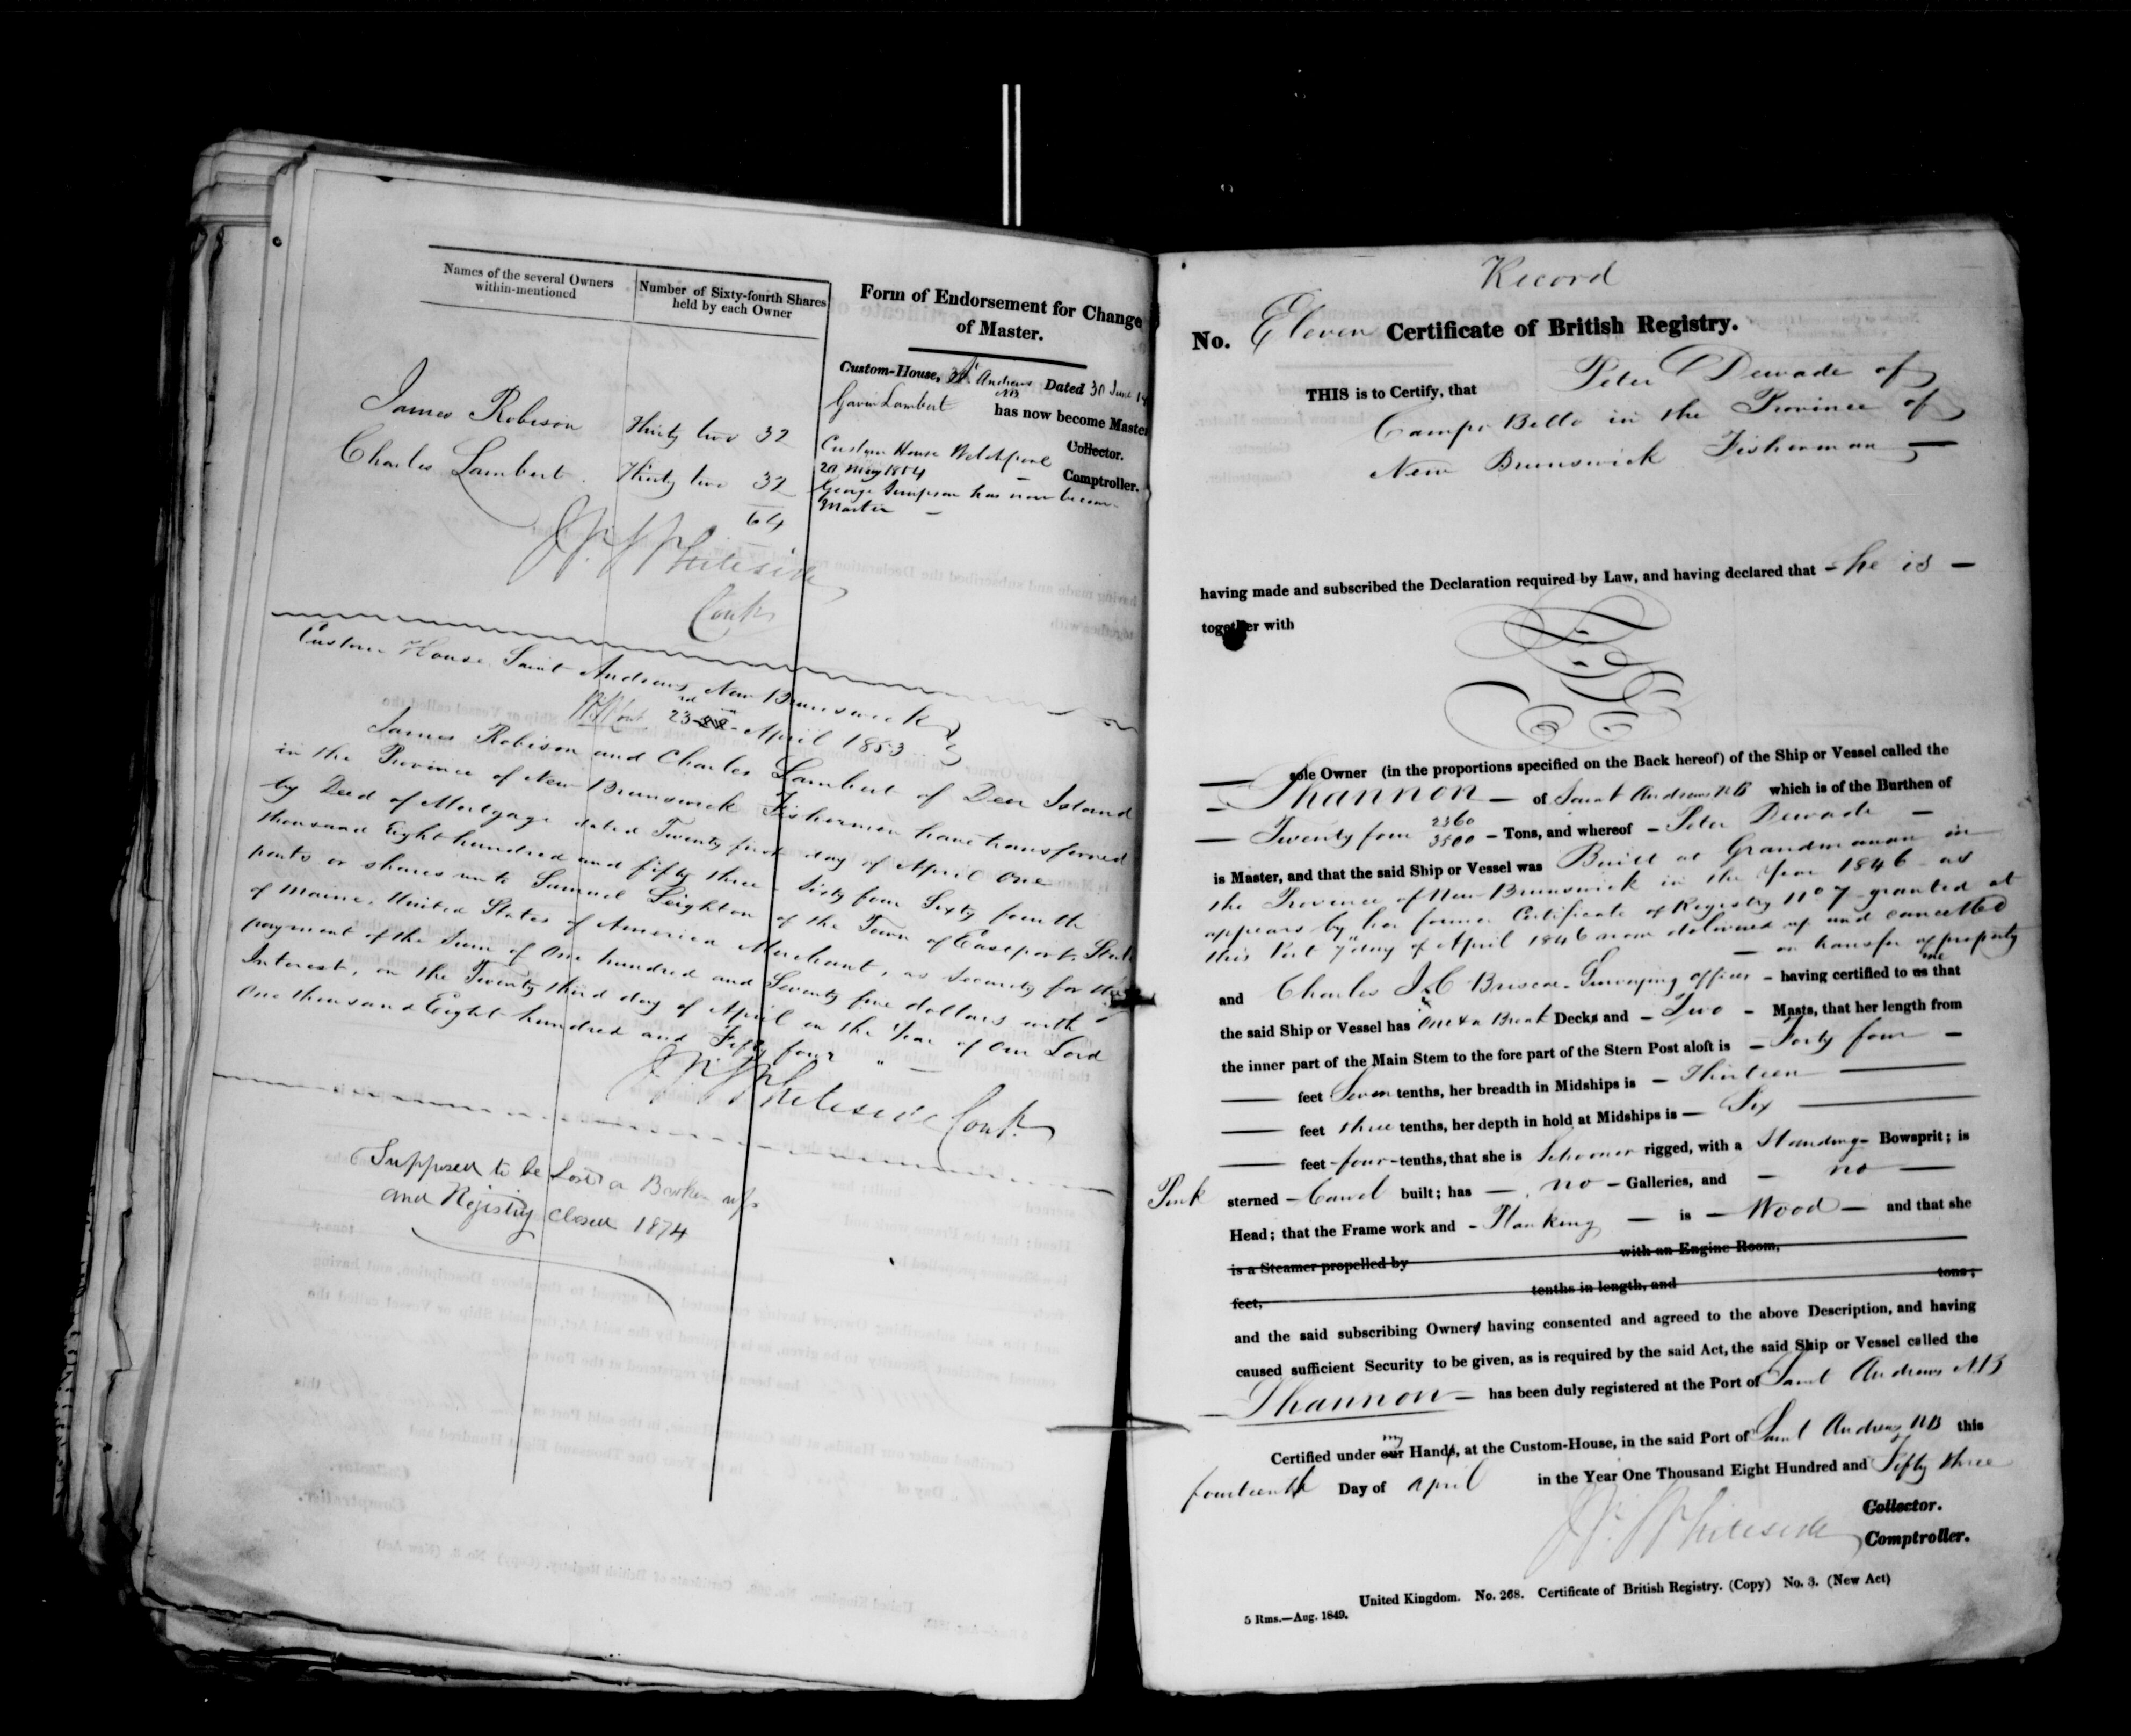 Names of the several Owners
within-mentioned
Number of Sixty-fourth Shares
held by each Owner
James Robison Thirty two 32
Charles Lambert Thirty two 32
64
J. W. Whiteside
Comptr
Form of Endorsement for Change
of Master.
Custom-House, St Andrews NB Dated 30 June
Gavin Lambert has now become Master
Collector.
Custom House Welchpool
20 May 1854
Comptroller.
George Simpson has now become
Master
Custom House Saint Andrews New Brunswick
23rd April 1853
James Robison and Charles Lambert of Deer Island
in the Province of New Brunswick Fishermen have transferred
by Deed of Mortgage dated Twenty first day of April One
thousand Eight hundred and fifty three Sixty four Sixty fourth
parts or shares unto Samuel Leighton of the Town of Eastport State
of Maine, United States of America Merchant, as Security for the
payment of the Sum of One hundred and Seventy five dollars with
Interest, on the Twenty third day of April in the Year of Our Lord
One thousand Eight hundred and Fifty four
J. W. Whiteside Compt.
Supposed to be lost or Broken up
and Registry Closed 1874
Record
No. Eleven Certificate of British Registry.
THIS is to Certify, that Peter Dewade of
Campo Bello in the Province of
New Brunswick Fisherman
having made and subscribed the Declaration required by Law, and having declared that he is
together with
sole Owner (in the proportions specified on the Back hereof) of the Ship or Vessel called the
Shannon of Saint Andrews NB which is of the Burthen of
Twenty four 2360/3500 Tons, and whereof Peter Dewade
is Master, and that the said Ship or Vessel was Built at Grandmanan in
the Province of New Brunswick in the Year 1846 as
appears by her former Certificate of Registry No 7 granted at
this Port 7 day of April 1846 now delivered up and cancelled
on transfer of property
and Charles J C Briscoe Surveying officer having certified to us me that
the said Ship or Vessel has One & a Break Decks and Two Masts, that her length from
the inner part of the Main Stem to the fore part of the Stern Post aloft is Forty four
feet Seven tenths, her breadth in Midships is Thirteen
feet three tenths, her depth in hold at Midships is Six
feet four tenths, that she is Schooner rigged, with a Standing Bowsprit; is
Pink sterned Carvel built; has no Galleries, and no
Head; that the Frame work and Planking is Wood and that she
is a Steamer propelled by with an Engine Room,
feet, tenths in length, and tons;
and the said subscribing Owners having consented and agreed to the above Description, and having
caused sufficient Security to be given, as is required by the said Act, the said Ship or Vessel called the
Shannon has been duly registered at the Port of Saint Andrews NB
Certified under our my Hands, at the Custom-House, in the said Port of Saint Andrews NB this
fourteenth Day of April in the Year One Thousand Eight Hundred and Fifty three
J. W. Whiteside
Collector.
Comptroller.
United Kingdom. No. 268. Certificate of British Registry. (Copy) No. 3. (New Act)
5 Rms.—Aug. 1849.